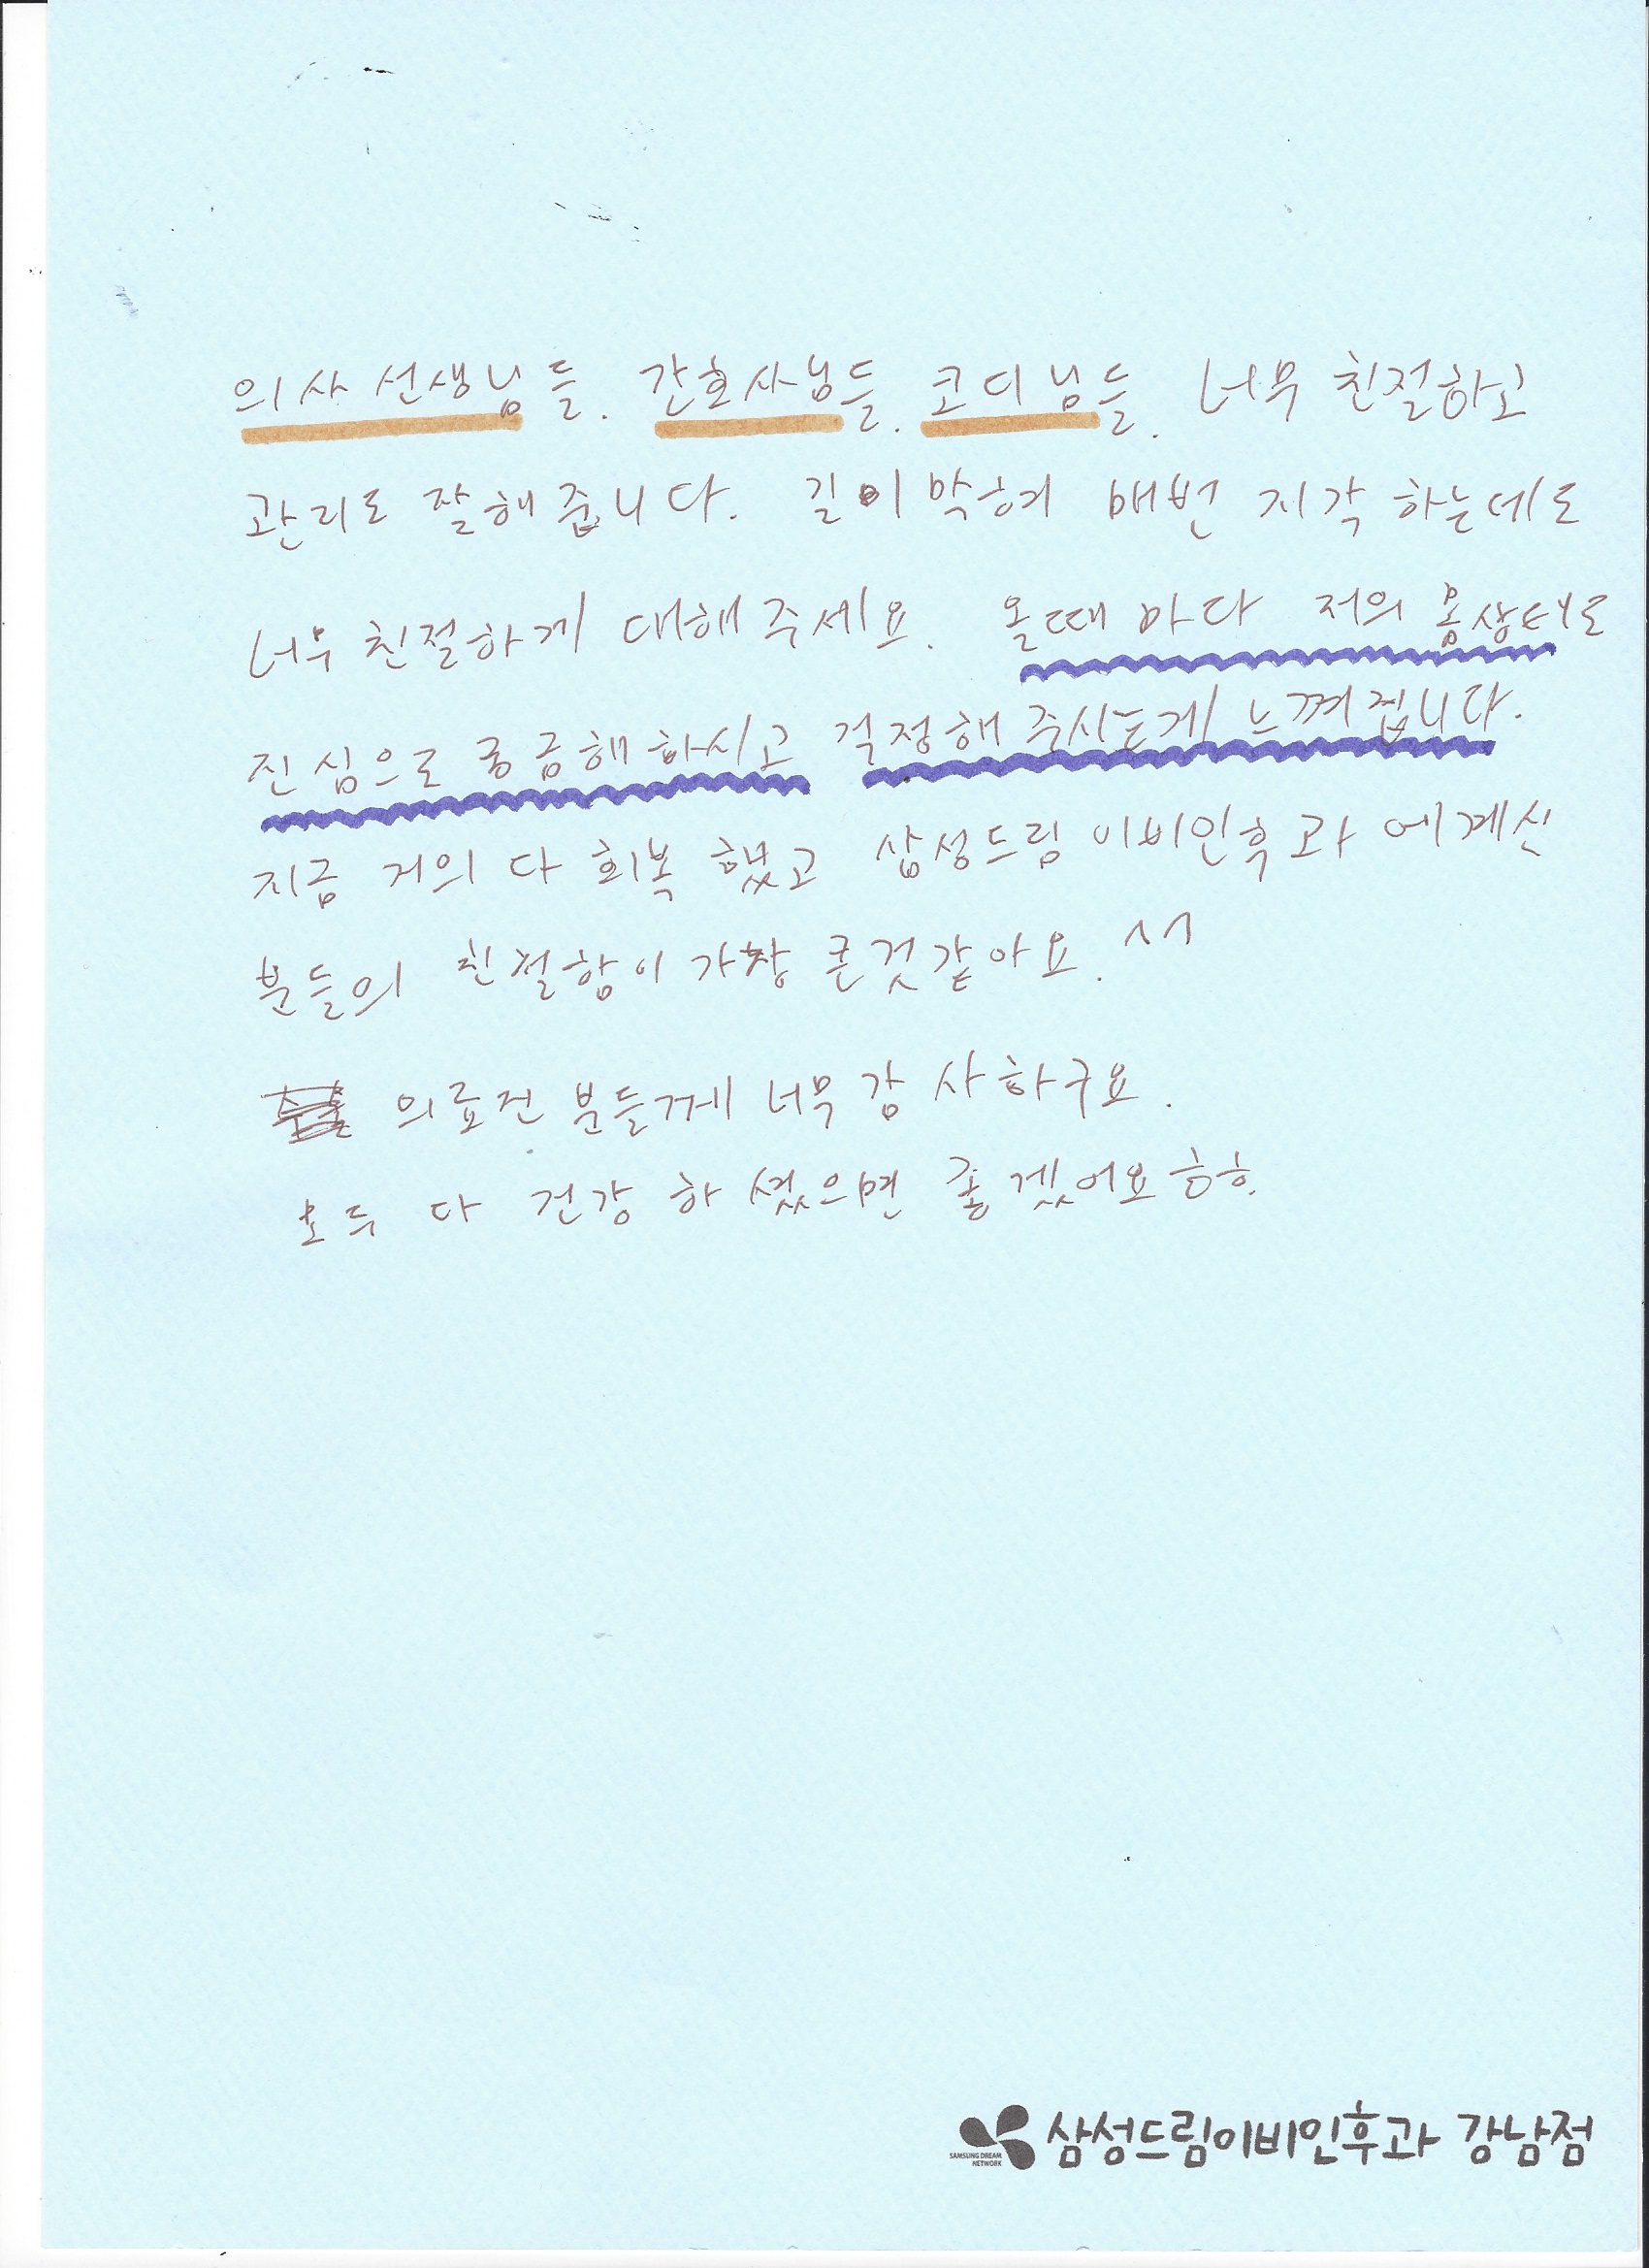 의사 선생님들. 간호사님들. 코디님들. 너무 친절하고
관리도 잘해줍니다. 길이 막혀 매번 지각 하는데도
너무 친절하게 대해주세요. 올때 마다 저의 몸상태도
진심으로 궁금해 하시고 걱정해 주시는게 느껴집니다.
지금 거의 다 회복 했고 삼성드림 이비인후과 에계신
분들의 친절함이 가장 큰것같아요. ^^
의료진 분들께 너무 감사하구요.
모두 다 건강 하셨으면 좋겠어요 흐흐.
SAMSUNG DREAM NETWORK 삼성드림이비인후과 강남점